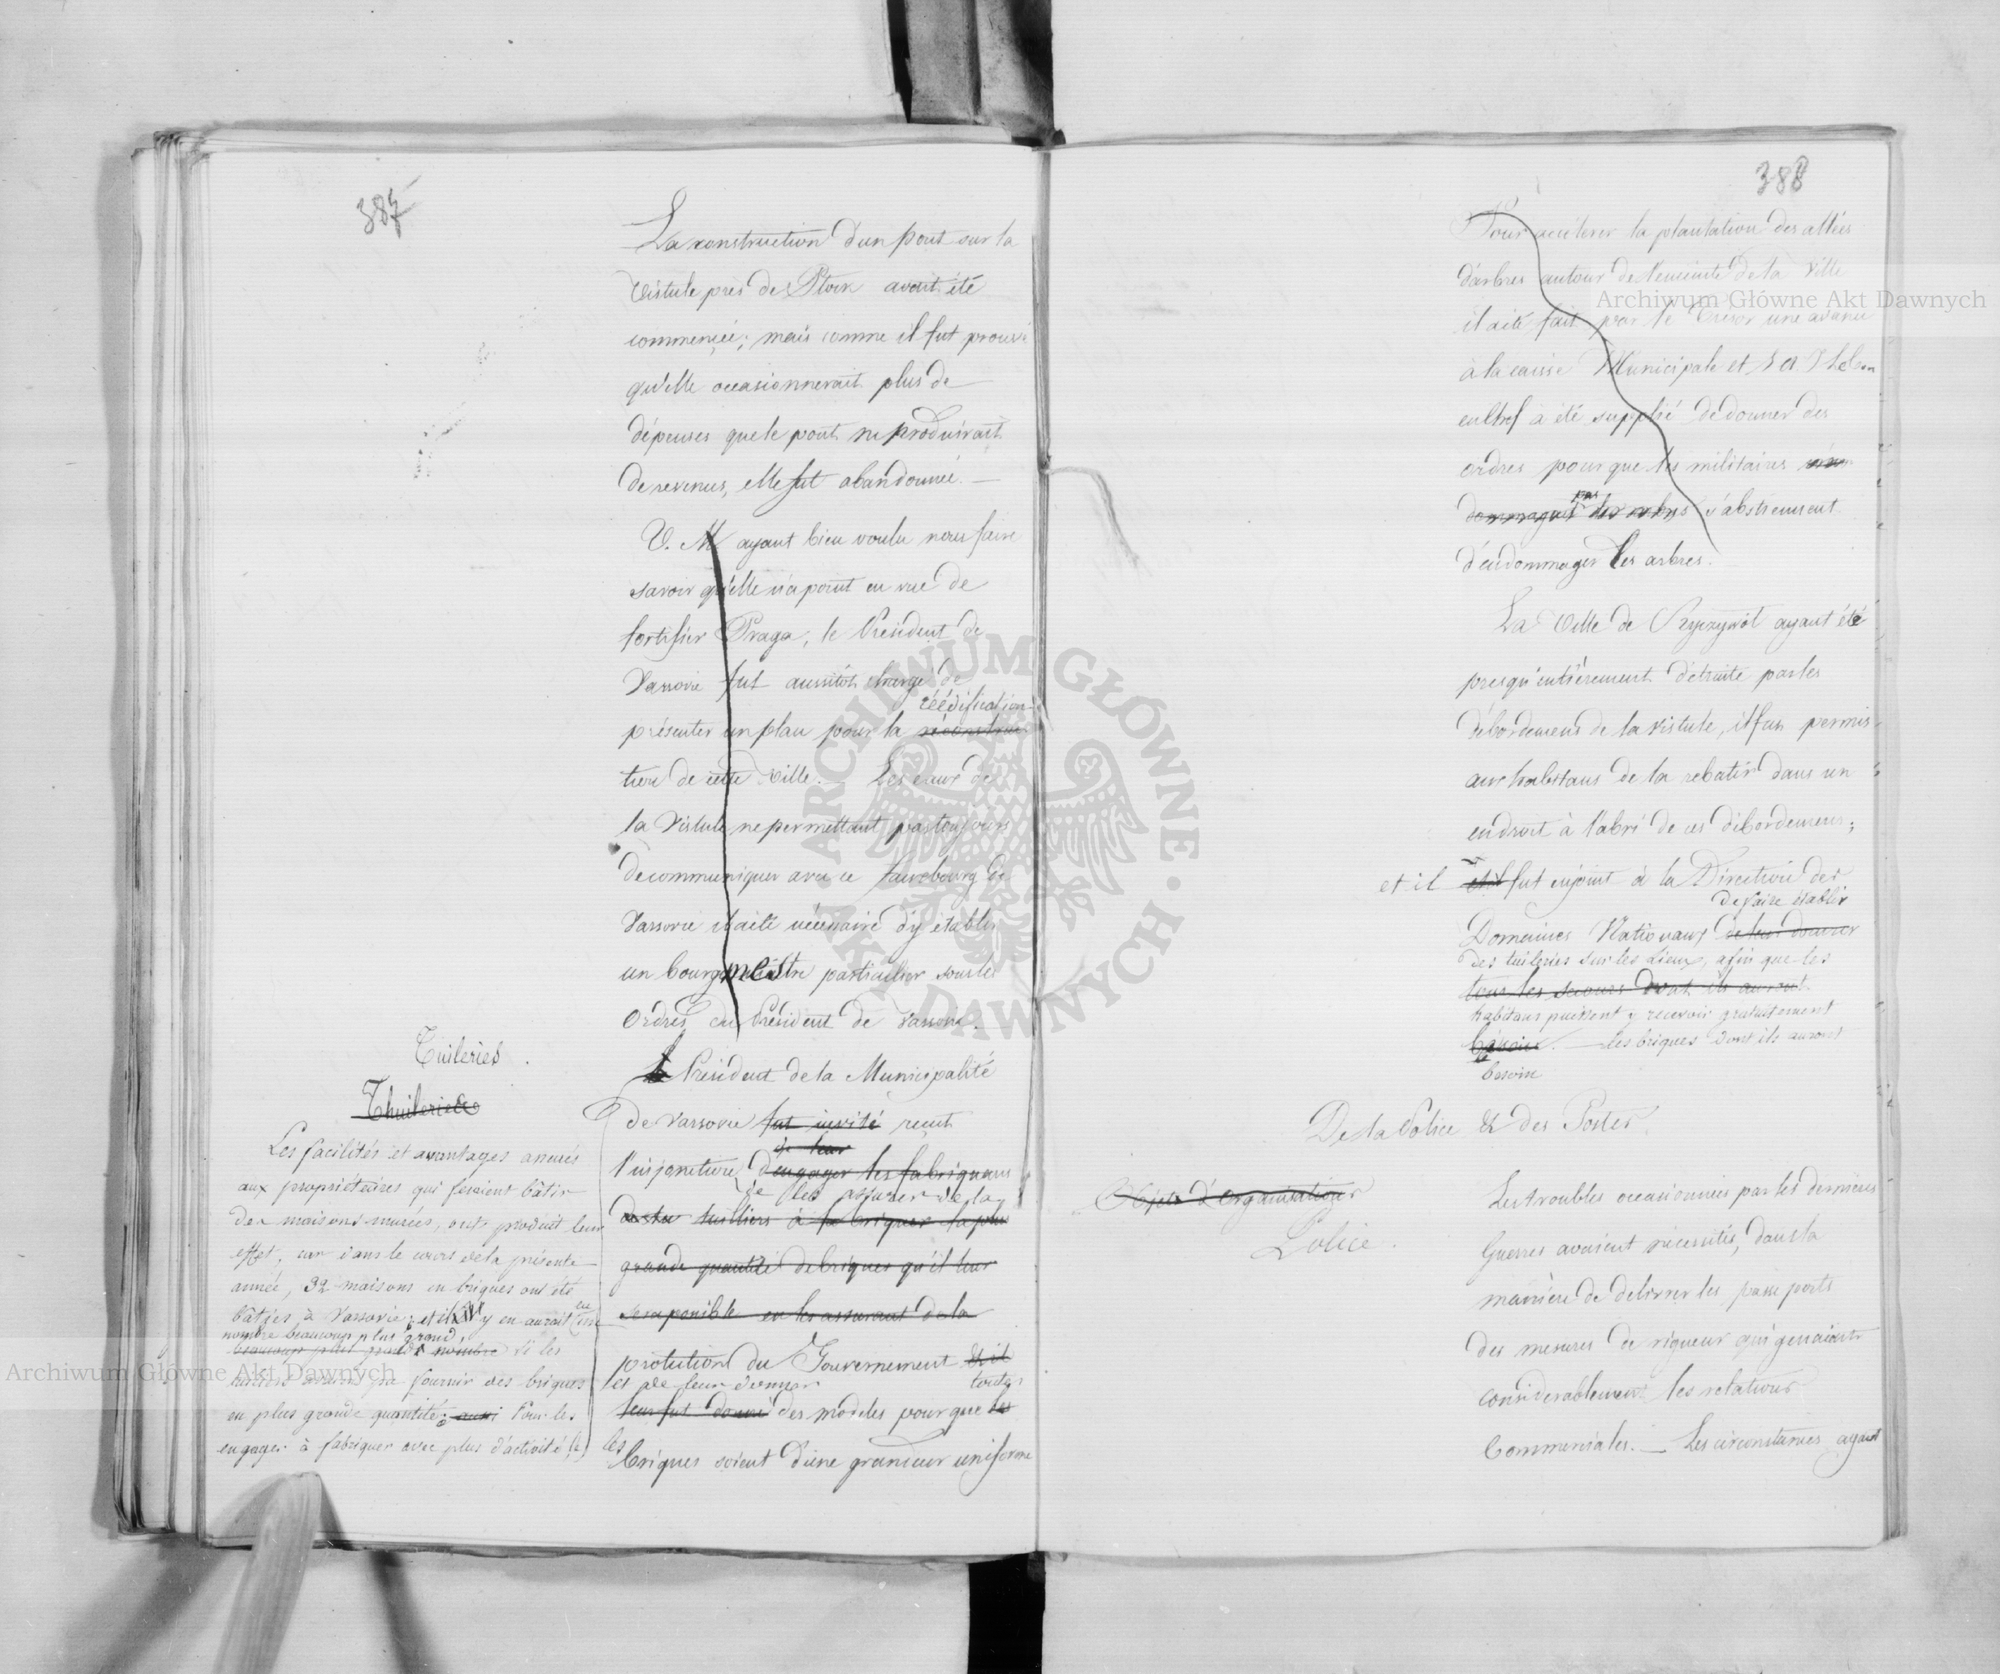 387
La construction d'un pont sur la
Vistule près de Plock avait été
commencée; mais comme il fut prouvé
qu'elle occasionnerait plus de
dépenses que le pont ne produirait
de revenus, elle fut abandonnée. —
V. M. ayant bien voulu nous faire
savoir qu'elle n'a point en vue de
fortifier Praga, le Président de
Varsovie fut aussitôt chargé de
réédification
présenter un plan pour la reconstruc
tion de cette ville. — Les eaux de
la Vistule ne permettant pas toujours
de communiquer avec ce fauxbourg de
Varsovie il a été nécessaire d'y établir
un bourgmestre particulier sous les
Ordres du Président de Varsovie.
Tuileries.
Thuileries
Le Président de la Municipalité
de Varsovie fut invité reçut
de leur
l'injonction d'engager les fabriquans
de les assurer de la
tuilliers à fabriquer la plus
grande quantité de briques qu'il leur
sera possible en les assurant de la
protection du Gouvernement & il
et de leur donner toutes
leur fut donné des modèles pour que les
les briques soient d'une grandeur uniforme
Les facilités et avantages assurés
aux propriétaires qui feroient bâtir
des maisons murées, ont produit leur
effet, car dans le cours de la présente
année, 32 maisons en briques ont été
bâties à Varsovie; et il y en aurait eu un
nombre beaucoup plus grand,
beaucoup plus grand nombre si les
pu fournir des briques
en plus grande quantité; aussi Pour les
engager à fabriquer avec plus d'activité, le
388
Pour accélerer la plantation des allées
d'arbres autour de l'enceinte de la Ville
il a été fait par le Trésor une avance
à la caisse Municipale et S. A.
en Chef a été supplié de donner des
ordres pour que les militaires
pas
dommages les arbres s'abstiennent
d'endommager les arbres.
La Ville de Ryczywół ayant été
presqu'entièrement détruite par les
débordemens de la Vistule, il fut permis
aux habitans de la rebatir dans un
endroit à l'abri de ces débordemens;
et il et il fut enjoint à la Direction des
de faire établir
Domaines Nationaux de leur donner
des tuileries sur les Lieux, afin que les
tous les secours dont ils auront
habitans puissent y recevoir gratuitement
besoin. — les briques dont ils auront
besoin
De la Police & des Postes.
Objets d'Organisation
Police.
Les troubles occasionnés par les dernières
Guerres avaient nécessité, dans la
manière de delivrer les passe ports
des mesures de rigueur qui genaient
considerablement les relations
Commerciales. — Les circonstances ayant
Archiwum Główne Akt Dawnych
Archiwum Główne Akt Dawnych
ARCHIWUM GŁÓWNE · AKT DAWNYCH ·